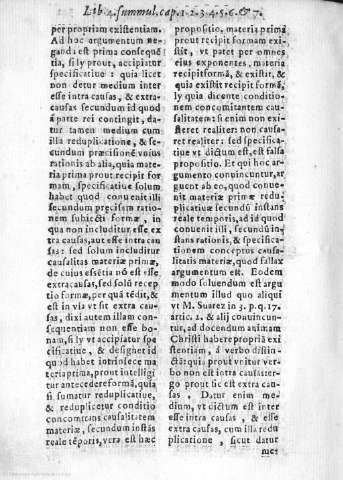 Lib. 4. summul. cap. 1. 2. 3. 4. 5. 6. & 7.
per propriam existentiam.
Ad hoc argumentum ne-
ganda est prima consequē
tia, si ly prout, accipiatur
specificatiue : quia licet
non detur medium inter
esse intra causas, & extra-
causas secundum id quod
á parte rei contingit, da-
tur tamen medium cum
illa reduplicatione, & se-
cundum præcisionē vnius
rationis ab alia, quia mate-
ria prima prout recipit for
mam, specificatiue solum
habet quod conuenit illi
secundum præcisam ratio-
nem subiecti formæ, in
qua non includitur esse ex
tra causas, aut esse intra cau
sas: sed solum includitur
causalitas materiæ primæ,
de cuius essētia nō est esse
extra causas, sed solū recep
tio formæ, per quā tēdit, &
est in via vt sit extra cau-
sas, dixi autem illam con-
sequentiam non esse bo-
nam, si ly vt accipiatur spe
cificatiue, & designet id
quod habet intrinsece ma
teria prima, prout intelligi
tur antecedere formā, quia
si sumatur reduplicatiue,
& reduplicetur conditio
concomitans causalitatem
materiæ, secundum instās
reale tēporis, vera est hæc
propositio, materia primā
prout recipit formam exi-
stit, vt patet per omnes
eius exponentes, materia
recipit formā, & existit, &
quia existit recipit formā,
ly quia dicente conditio-
nem concomitantem cau-
salitatem: si enim non exi-
steret realiter: non causa-
ret realiter: sed specifica-
tiue vt dictum est, est falsa
propositio. Et qui hoc ar-
gumento conuincuntur, ar-
guent ab eo, quod conue-
nit materiæ primæ redu-
plicatiue secundū instans
reale temporis, ad id quod
conuenit illi, secundū in-
stans rationis, & specifica-
tionem conceptus causa-
litatis materiæ, quod fallax
argumentum est. Eodem
modo soluendum est ar-
gumentum illud quo aliqui
vt M. Suarez in 3. p. q. 17.
artic. 1. & alij conuincun-
tur, ad docendum animam
Christi habere propriā exi
stentiam, á verbo distin-
ctā: qui prout vnitur ver-
bo non est intra causas er-
go prout sic est extra cau
sas. Datur enim me-
dium, vt dictum est inter
esse intra causas, & esse
extra causas, cum illa redu
plicatione, sicut datur
me-